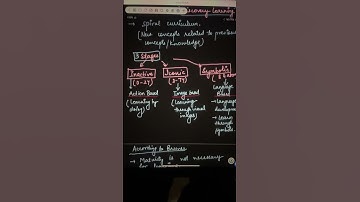 Discovery Learning
→ Spiral curriculum.
(New concepts related to previous
concepts/knowledge)
3 Stages
Inactive
(0-2Y)
Iconic
(2-7Y)
Symbolic
Action Based
(Learning by
doing)
Image based
(Learning
through visual
images)
Language
Based
→ Language
→ learn
through
symbols.
According to Bruner
→ Maturity is not necessary